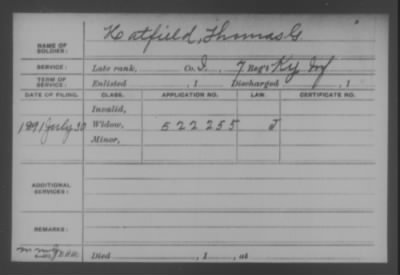 NAME OF SOLDIER: Hatfield, Thomas G.
SERVICE: Late rank, Co. I, 7 Reg't Ky Inf
TERM OF SERVICE: Enlisted , 1 Discharged , 1
DATE OF FILING. CLASS. APPLICATION NO. LAW. CERTIFICATE NO.
Invalid,
1891 July 30 Widow, 522255 J
Minor,
ADDITIONAL SERVICES:
REMARKS:
Died , 1 , at